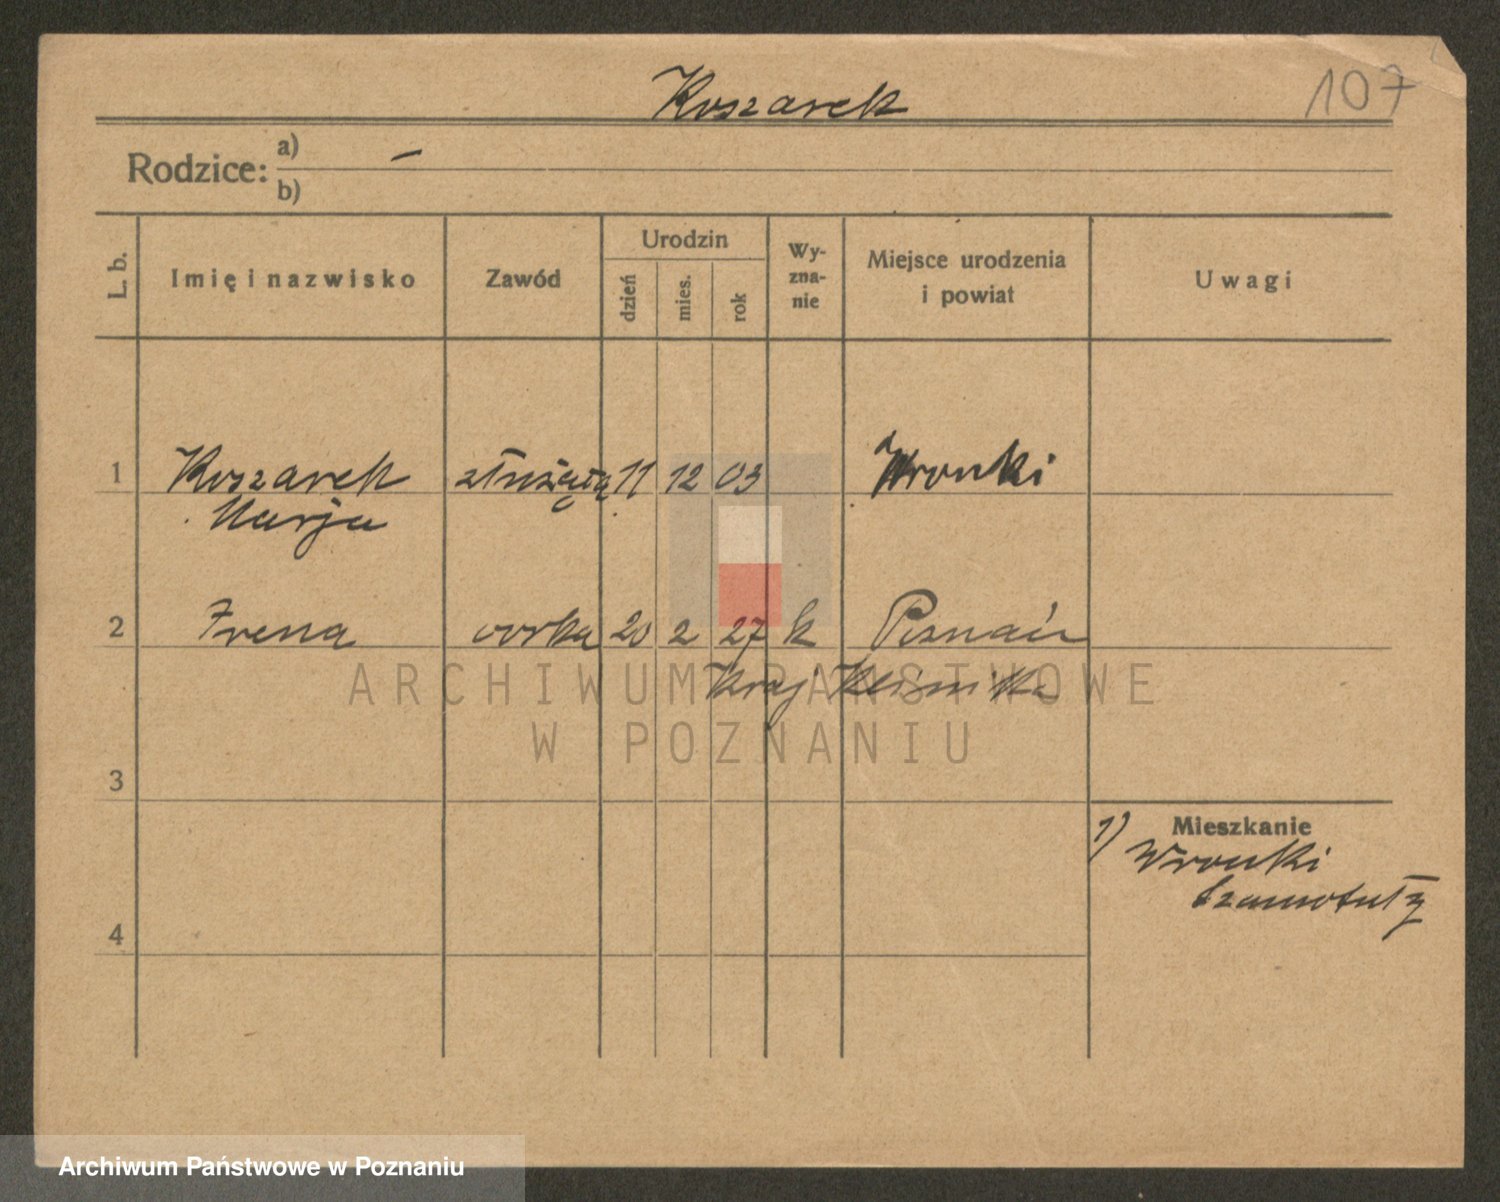 Koszarek
107
Rodzice: a) –
b)
L. b.
Imię i nazwisko
Zawód
Urodzin
dzień
mies.
rok
Wy-
zna-
nie
Miejsce urodzenia
i powiat
Uwagi
1 Koszarek służąca 11 12 03 Wronki
Marja
2 Irena córka 20 2 27 k Poznań
Kraj. Klinika
3
4
Mieszkanie
1) Wronki
Szamotuły
ARCHIWUM PAŃSTWOWE
W POZNANIU
Archiwum Państwowe w Poznaniu